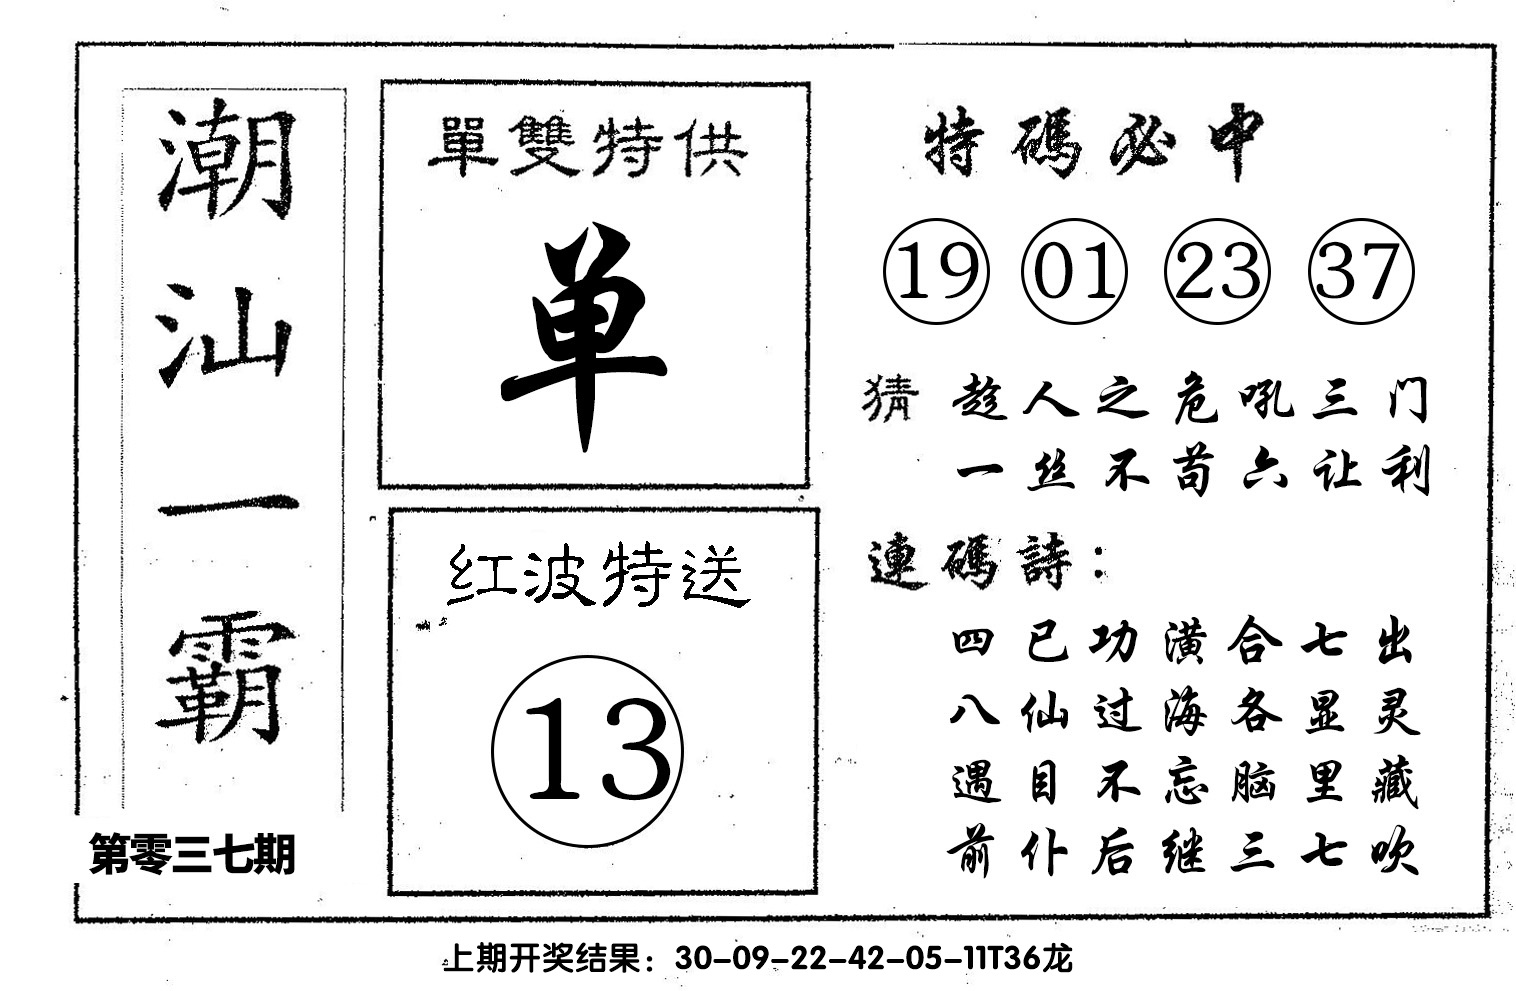 潮汕一霸
第零三七期
單雙特供
单
红波特送
13
特碼必中
19 01 23 37
猜 趁人之危吼三门
一丝不苟六让利
連碼詩：
四已功潢合七出
八仙过海各显灵
遇目不忘脑里藏
前仆后继三七吹
上期开奖结果：30-09-22-42-05-11T36龙